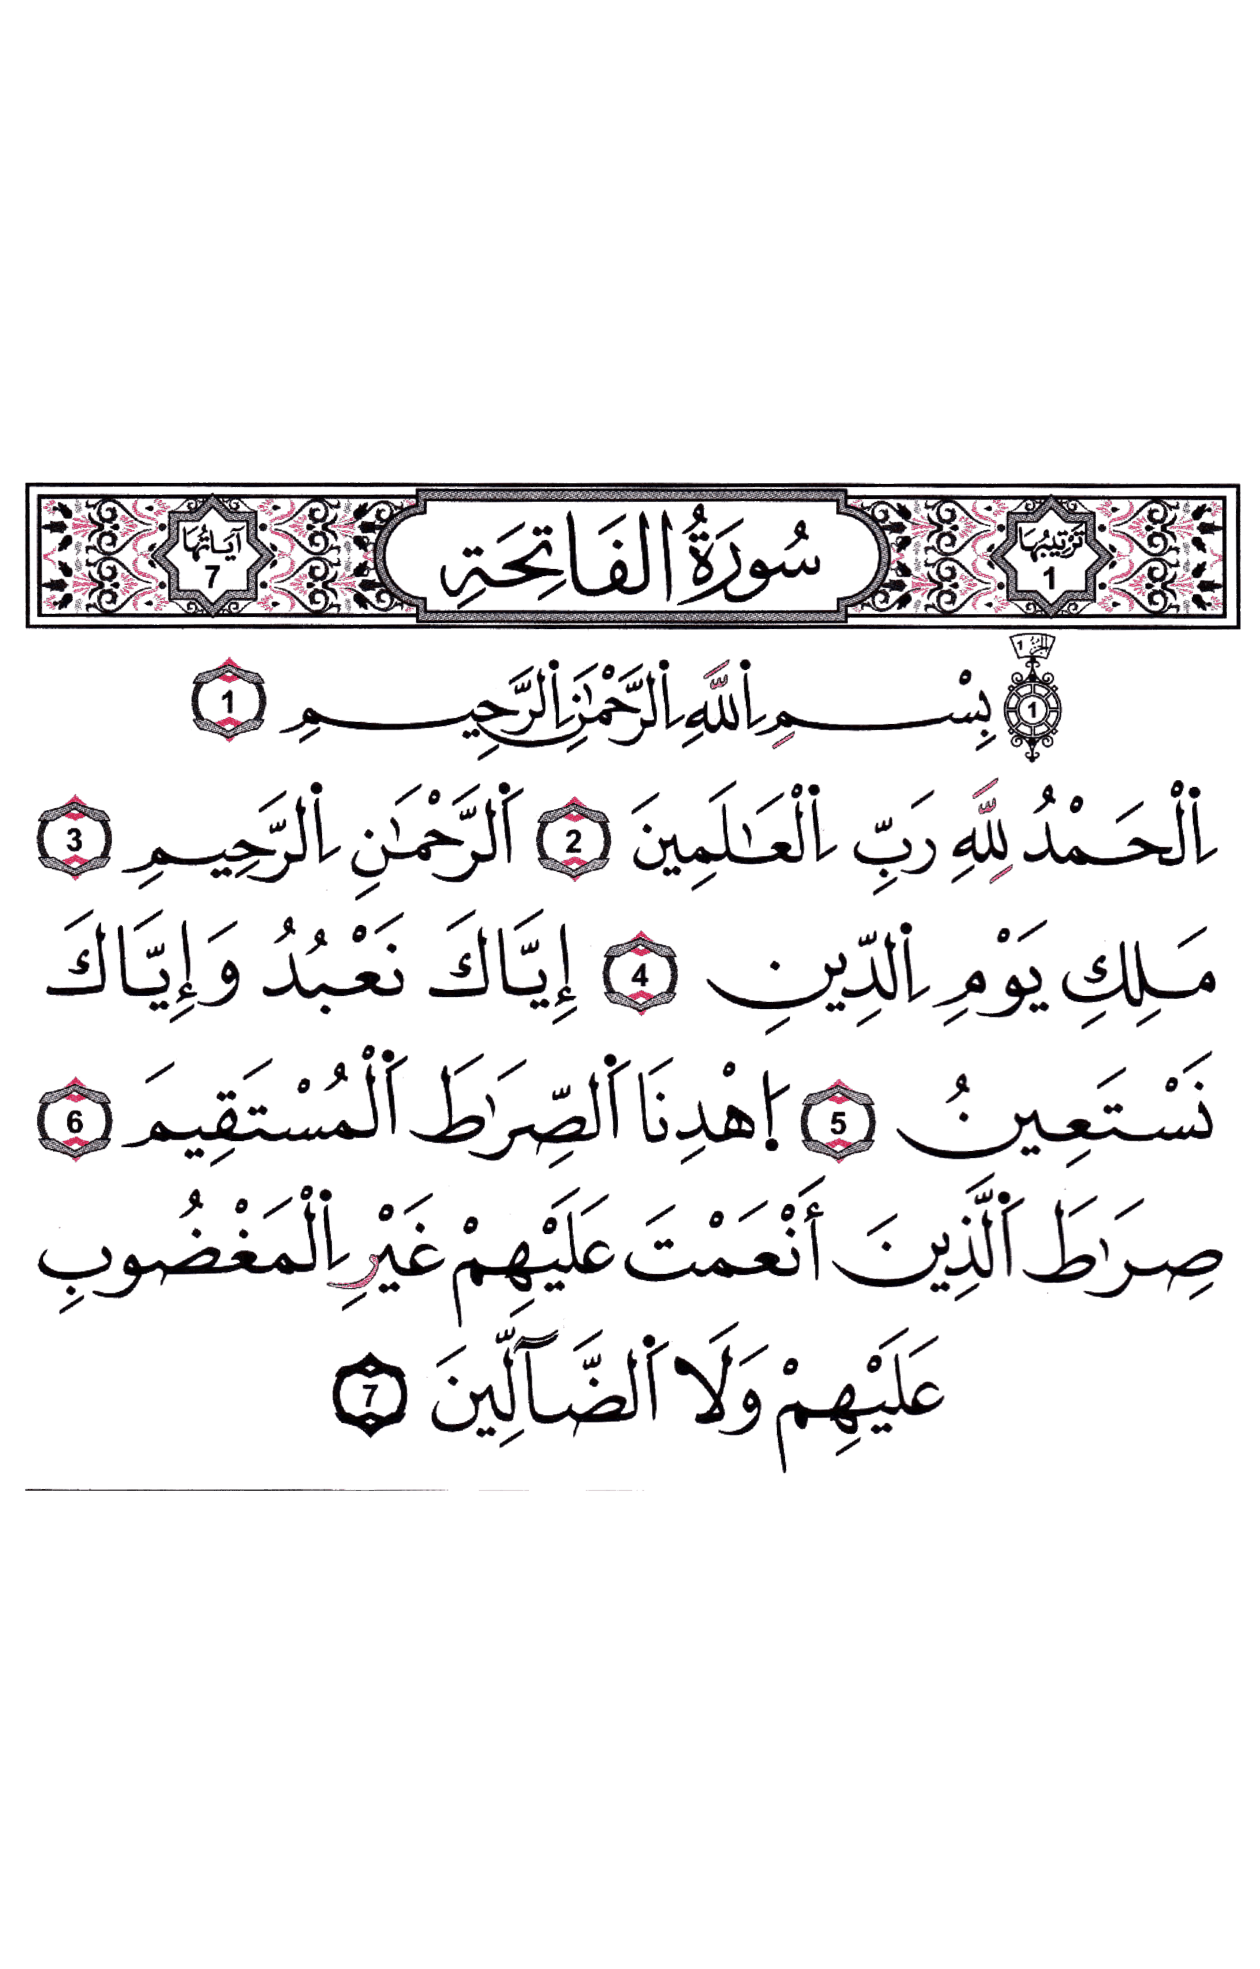 تَرْتِيبُهَا 1 سُورَةُ الْفَاتِحَةِ آيَاتُهَا 7
الجزء 1
1 بِسْمِ اِ۬للَّهِ اِ۬لرَّحْمَٰنِ اِ۬لرَّحِيمِ 1
اِ۬لْحَمْدُ لِلَّهِ رَبِّ اِ۬لْعَٰلَمِينَ 2 اَ۬لرَّحْمَٰنِ اِ۬لرَّحِيمِ 3
مَلِكِ يَوْمِ اِ۬لدِّينِ 4 إِيَّاكَ نَعْبُدُ وَإِيَّاكَ
نَسْتَعِينُ 5 اِ۪هْدِنَا اَ۬لصِّرَٰطَ اَ۬لْمُسْتَقِيمَ 6
صِرَٰطَ اَ۬لَّذِينَ أَنْعَمْتَ عَلَيْهِمْ غَيْرِ اِ۬لْمَغْضُوبِ
عَلَيْهِمْ وَلَا اَ۬لضَّآلِّينَ 7